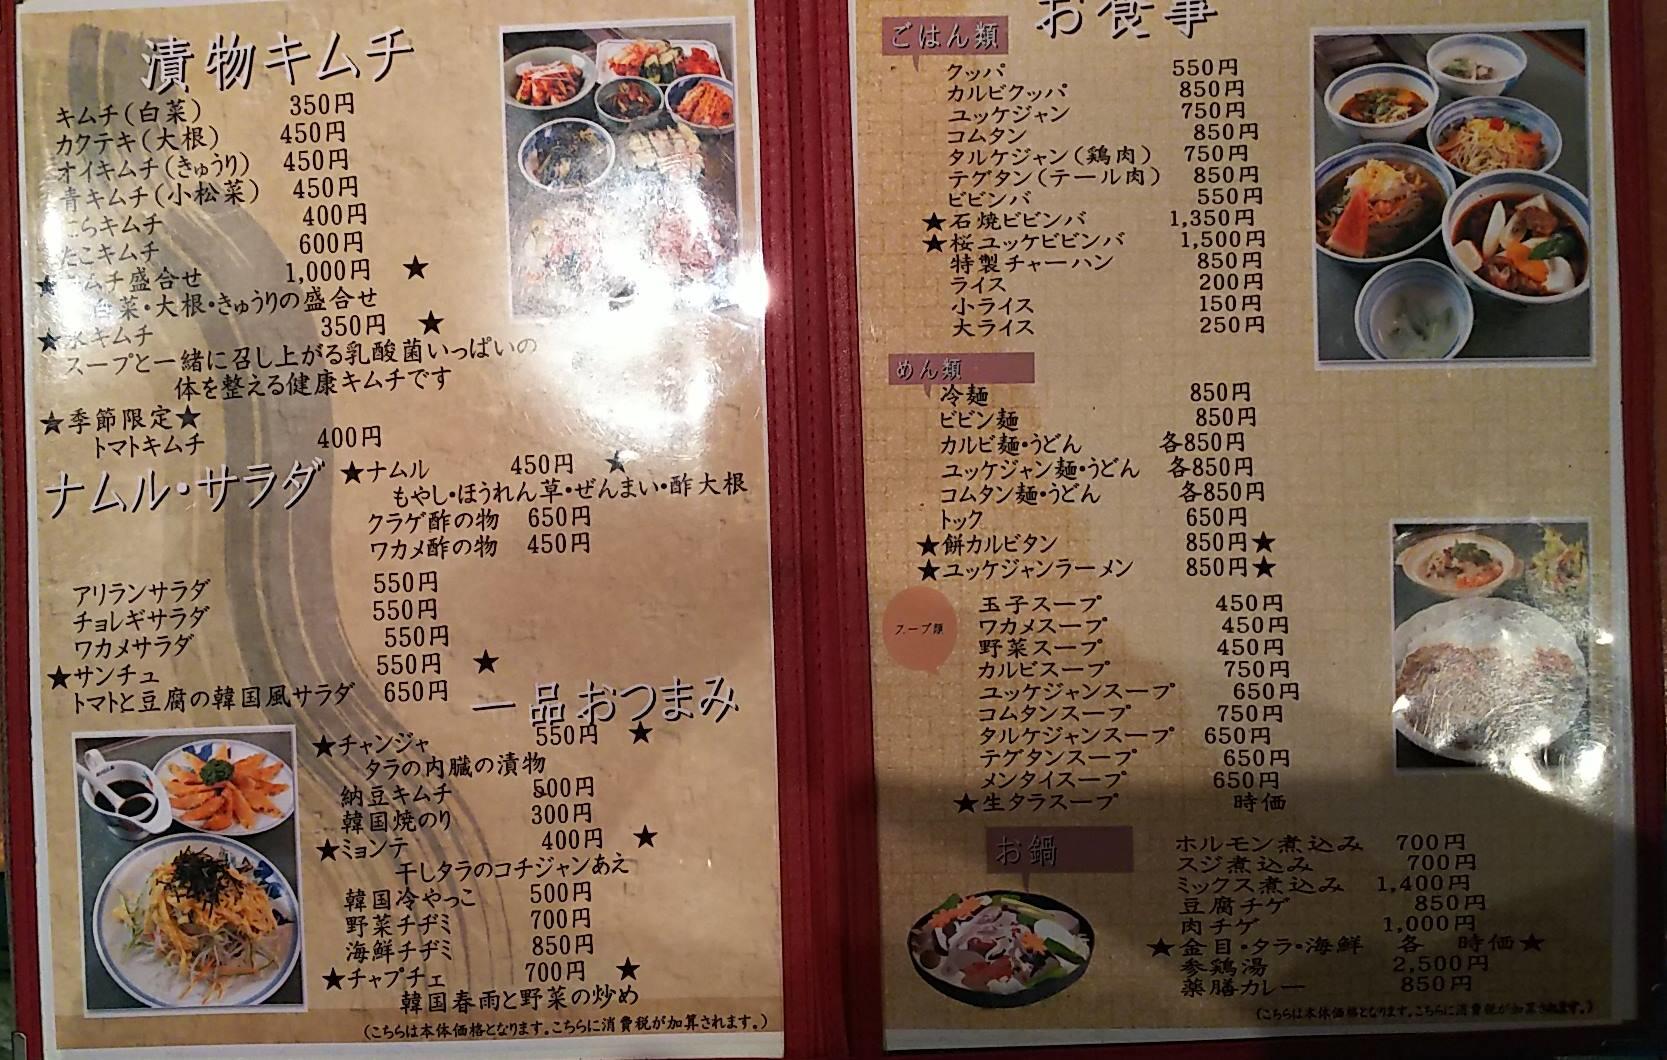 漬物キムチ
キムチ(白菜) 350円
カクテキ(大根) 450円
オイキムチ(きゅうり) 450円
青キムチ(小松菜) 450円
らキムチ 400円
たこキムチ 600円
★ ムチ盛合せ 1,000円 ★
白菜・大根・きゅうりの盛合せ
★水キムチ 350円 ★
スープと一緒に召し上がる乳酸菌いっぱいの
体を整える健康キムチです
★季節限定★
トマトキムチ 400円
ナムル・サラダ
★ナムル 450円 ★
もやし・ほうれん草・ぜんまい・酢大根
クラゲ酢の物 650円
ワカメ酢の物 450円
アリランサラダ 550円
チョレギサラダ 550円
ワカメサラダ 550円
★サンチュ 550円 ★
トマトと豆腐の韓国風サラダ 650円
一品おつまみ
★チャンジャ 550円 ★
タラの内臓の漬物
納豆キムチ 500円
韓国焼のり 300円
★ミョンテ 400円 ★
干しタラのコチジャンあえ
韓国冷やっこ 500円
野菜チヂミ 700円
海鮮チヂミ 850円
★チャプチェ 700円 ★
韓国春雨と野菜の炒め
(こちらは本体価格となります。こちらに消費税が加算されます。)
お食事
ごはん類
クッパ 550円
カルビクッパ 850円
ユッケジャン 750円
コムタン 850円
タルケジャン(鶏肉) 750円
テグタン(テール肉) 850円
ビビンバ 550円
★石焼ビビンバ 1,350円
★桜ユッケビビンバ 1,500円
特製チャーハン 850円
ライス 200円
小ライス 150円
大ライス 250円
めん類
冷麺 850円
ビビン麺 850円
カルビ麺・うどん 各850円
ユッケジャン麺・うどん 各850円
コムタン麺・うどん 各850円
トック 650円
★餅カルビタン 850円★
★ユッケジャンラーメン 850円★
スープ類
玉子スープ 450円
ワカメスープ 450円
野菜スープ 450円
カルビスープ 750円
ユッケジャンスープ 650円
コムタンスープ 750円
タルケジャンスープ 650円
テグタンスープ 650円
メンタイスープ 650円
★生タラスープ 時価
お鍋
ホルモン煮込み 700円
スジ煮込み 700円
ミックス煮込み 1,400円
豆腐チゲ 850円
肉チゲ 1,000円
★金目・タラ・海鮮 各 時価★
参鶏湯 2,500円
薬膳カレー 850円
(こちらは本体価格となります。こちらに消費税が加算されます。)